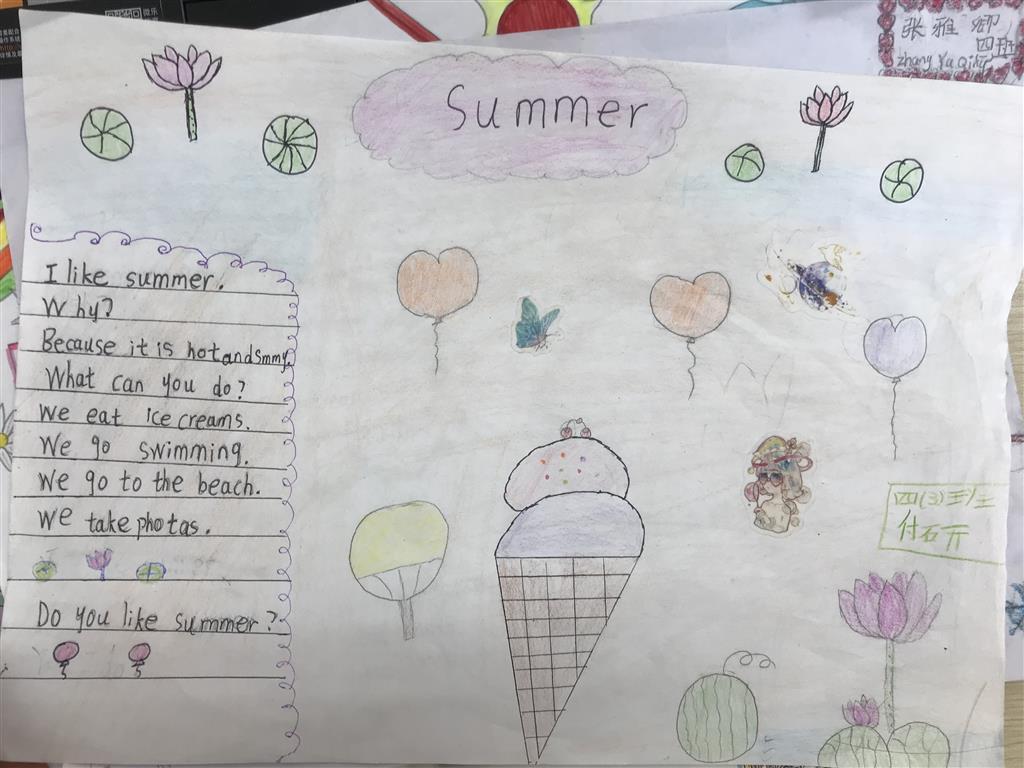 张雅卿
四班
zhang Ya Qing
Summer
I like summer.
Why?
Because it is hot and smmy
What can you do?
We eat ice creams.
We go swimming.
We go to the beach.
We take photas.
Do you like summer?
四(3)王